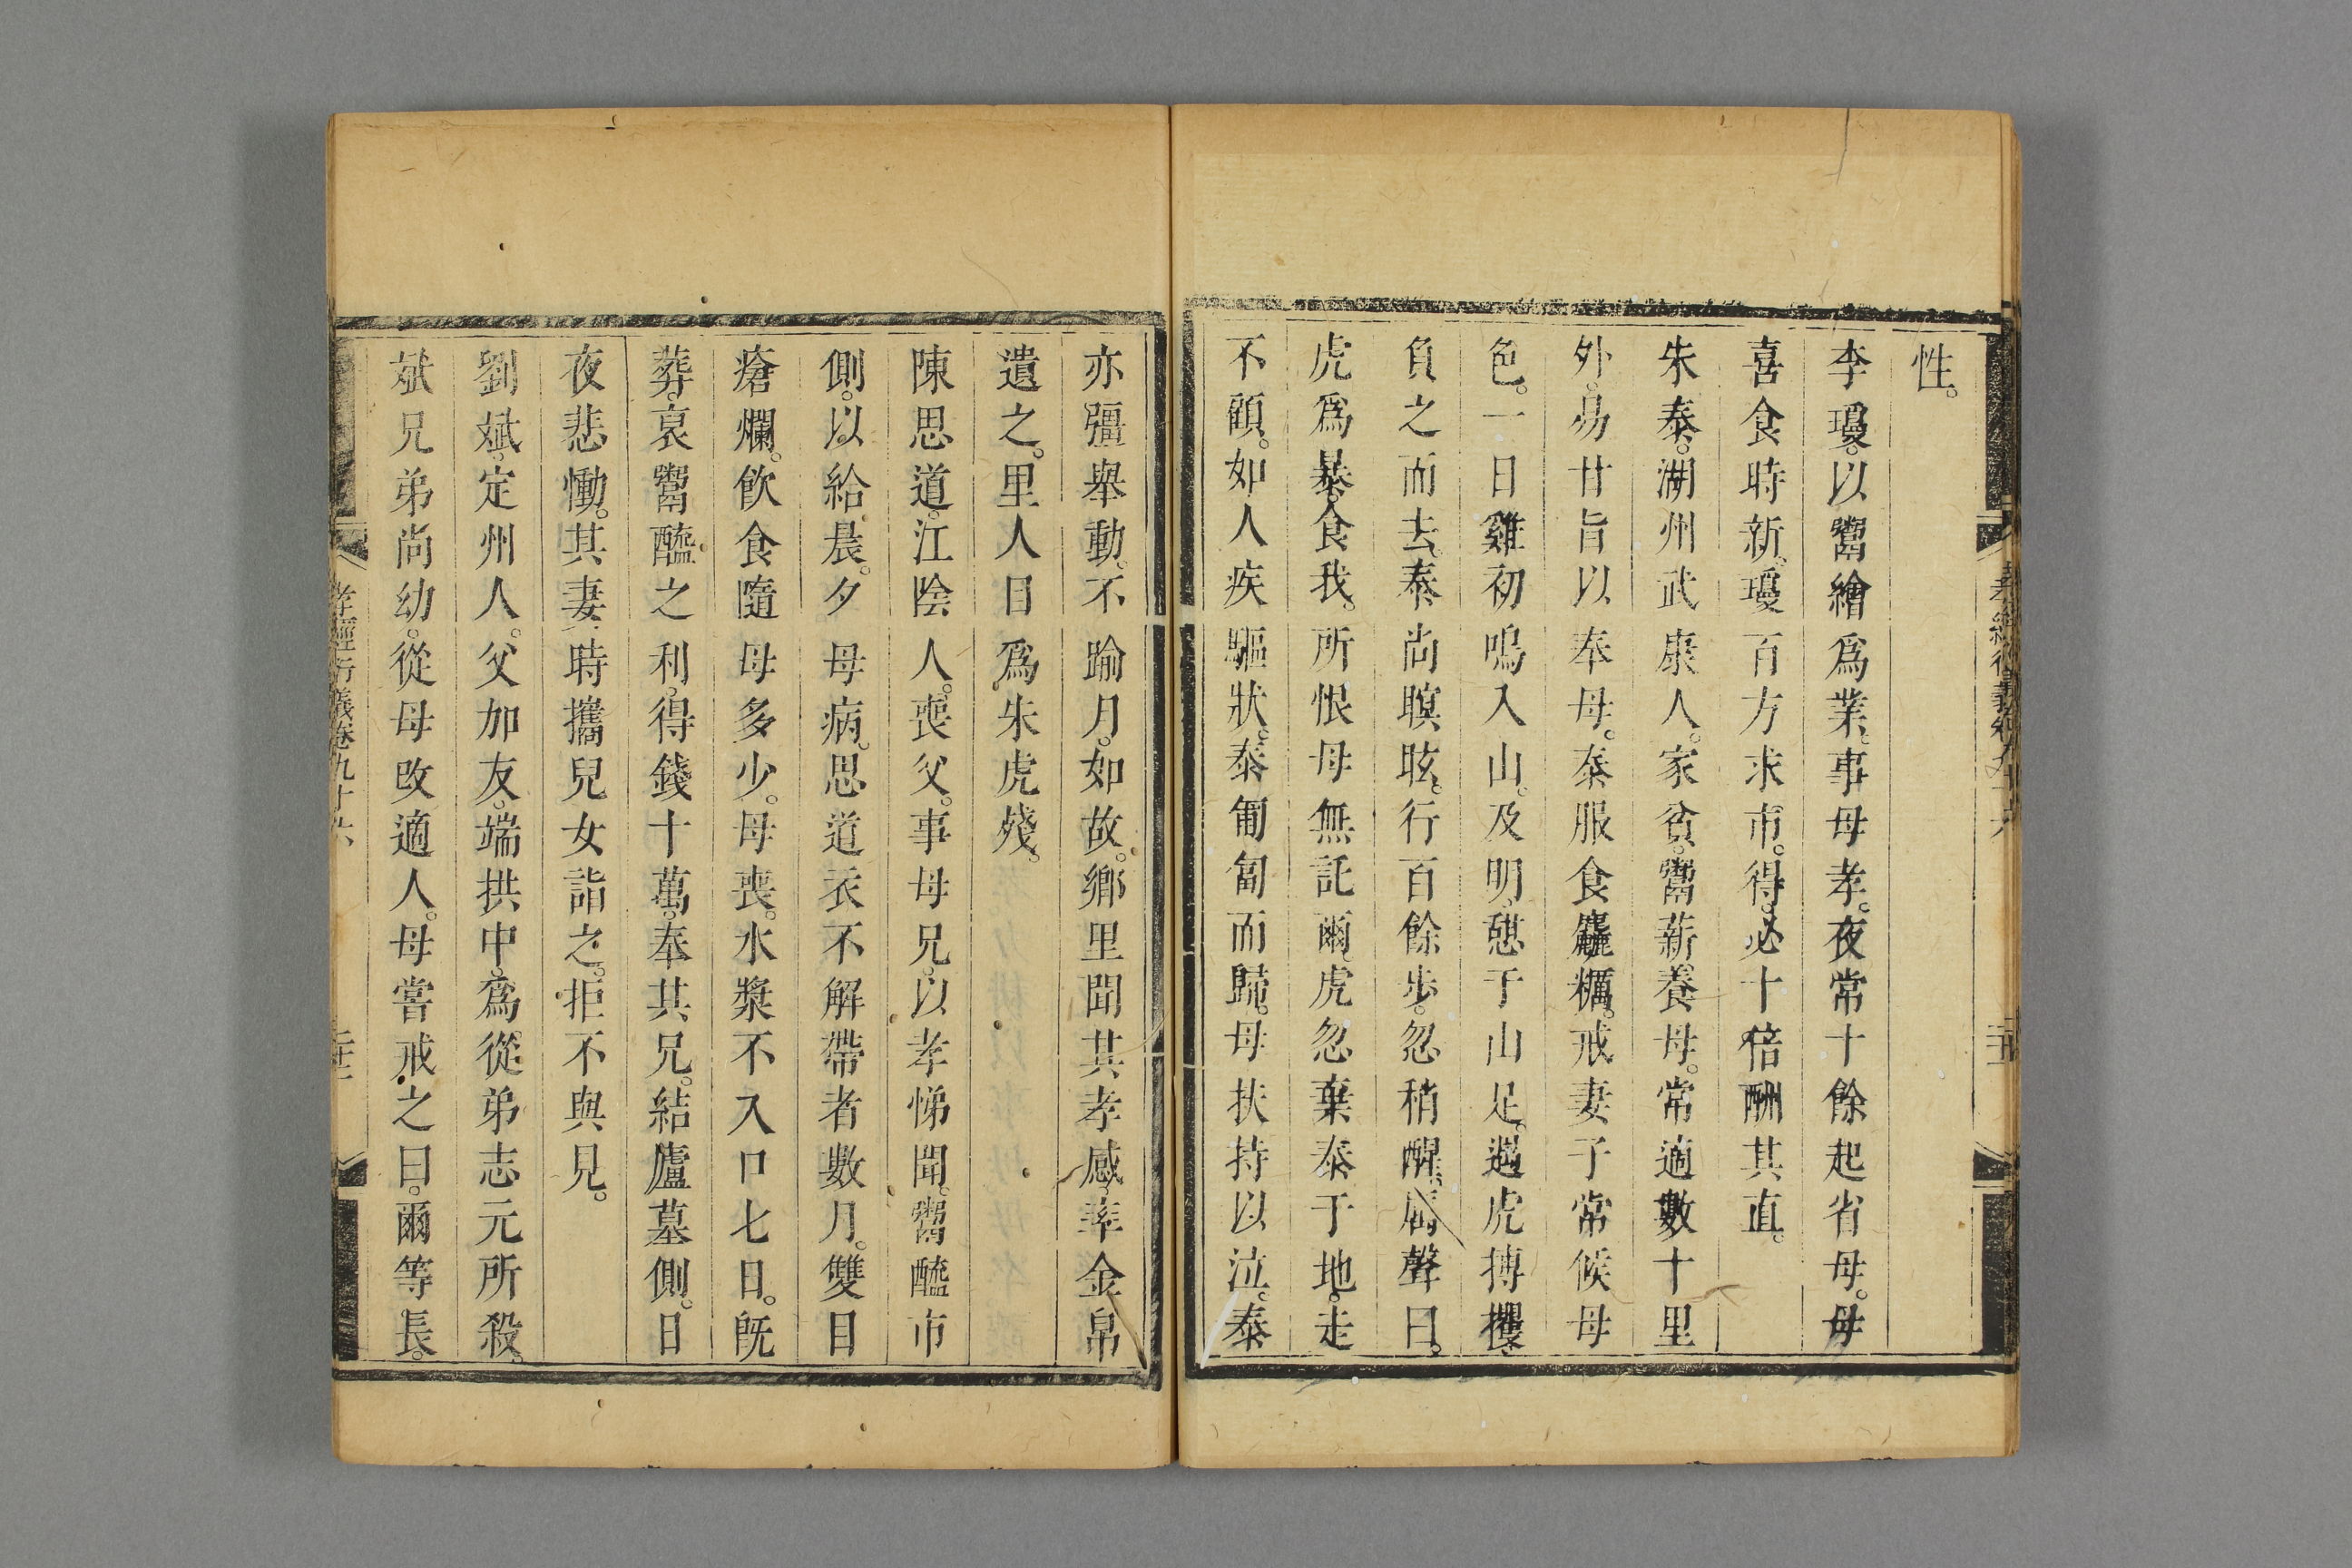 性。
李瓊。以鬻繒爲業。事母孝。夜常十餘起省母。母
喜食時新。瓊百方求市。得。必十倍酬其直。
朱泰。湖州武康人。家貧。鬻薪養母。常適數十里
外。易甘旨以奉母。泰服食麤糲。戒妻子常候母
色。一日雞初鳴入山。及明。憩于山足。遇虎搏攫。
負之而去。泰尚瞑眩。行百餘步。忽稍醒。厲聲曰。
虎爲暴食我。所恨母無託爾。虎忽棄泰于地。走
不顧。如人疾驅狀。泰匍匐而歸。母扶持以泣。泰
亦彊舉動。不踰月。如故。鄉里聞其孝感。率金帛
遺之。里人目爲朱虎殘。
陳思道。江陰人。喪父。事母兄。以孝悌聞。鬻醯市
側。以給晨夕。母病。思道衣不解帶者數月。雙目
瘡爛。飲食隨母多少。母喪。水漿不入口七日。旣
葬。哀鬻醯之利。得錢十萬。奉其兄。結廬墓側。日
夜悲慟。其妻時攜兒女詣之。拒不與見。
劉斌。定州人。父加友。端拱中。爲從弟志元所殺。
斌兄弟尚幼。從母改適人。母嘗戒之曰。爾等長。
孝經衍義卷九十六